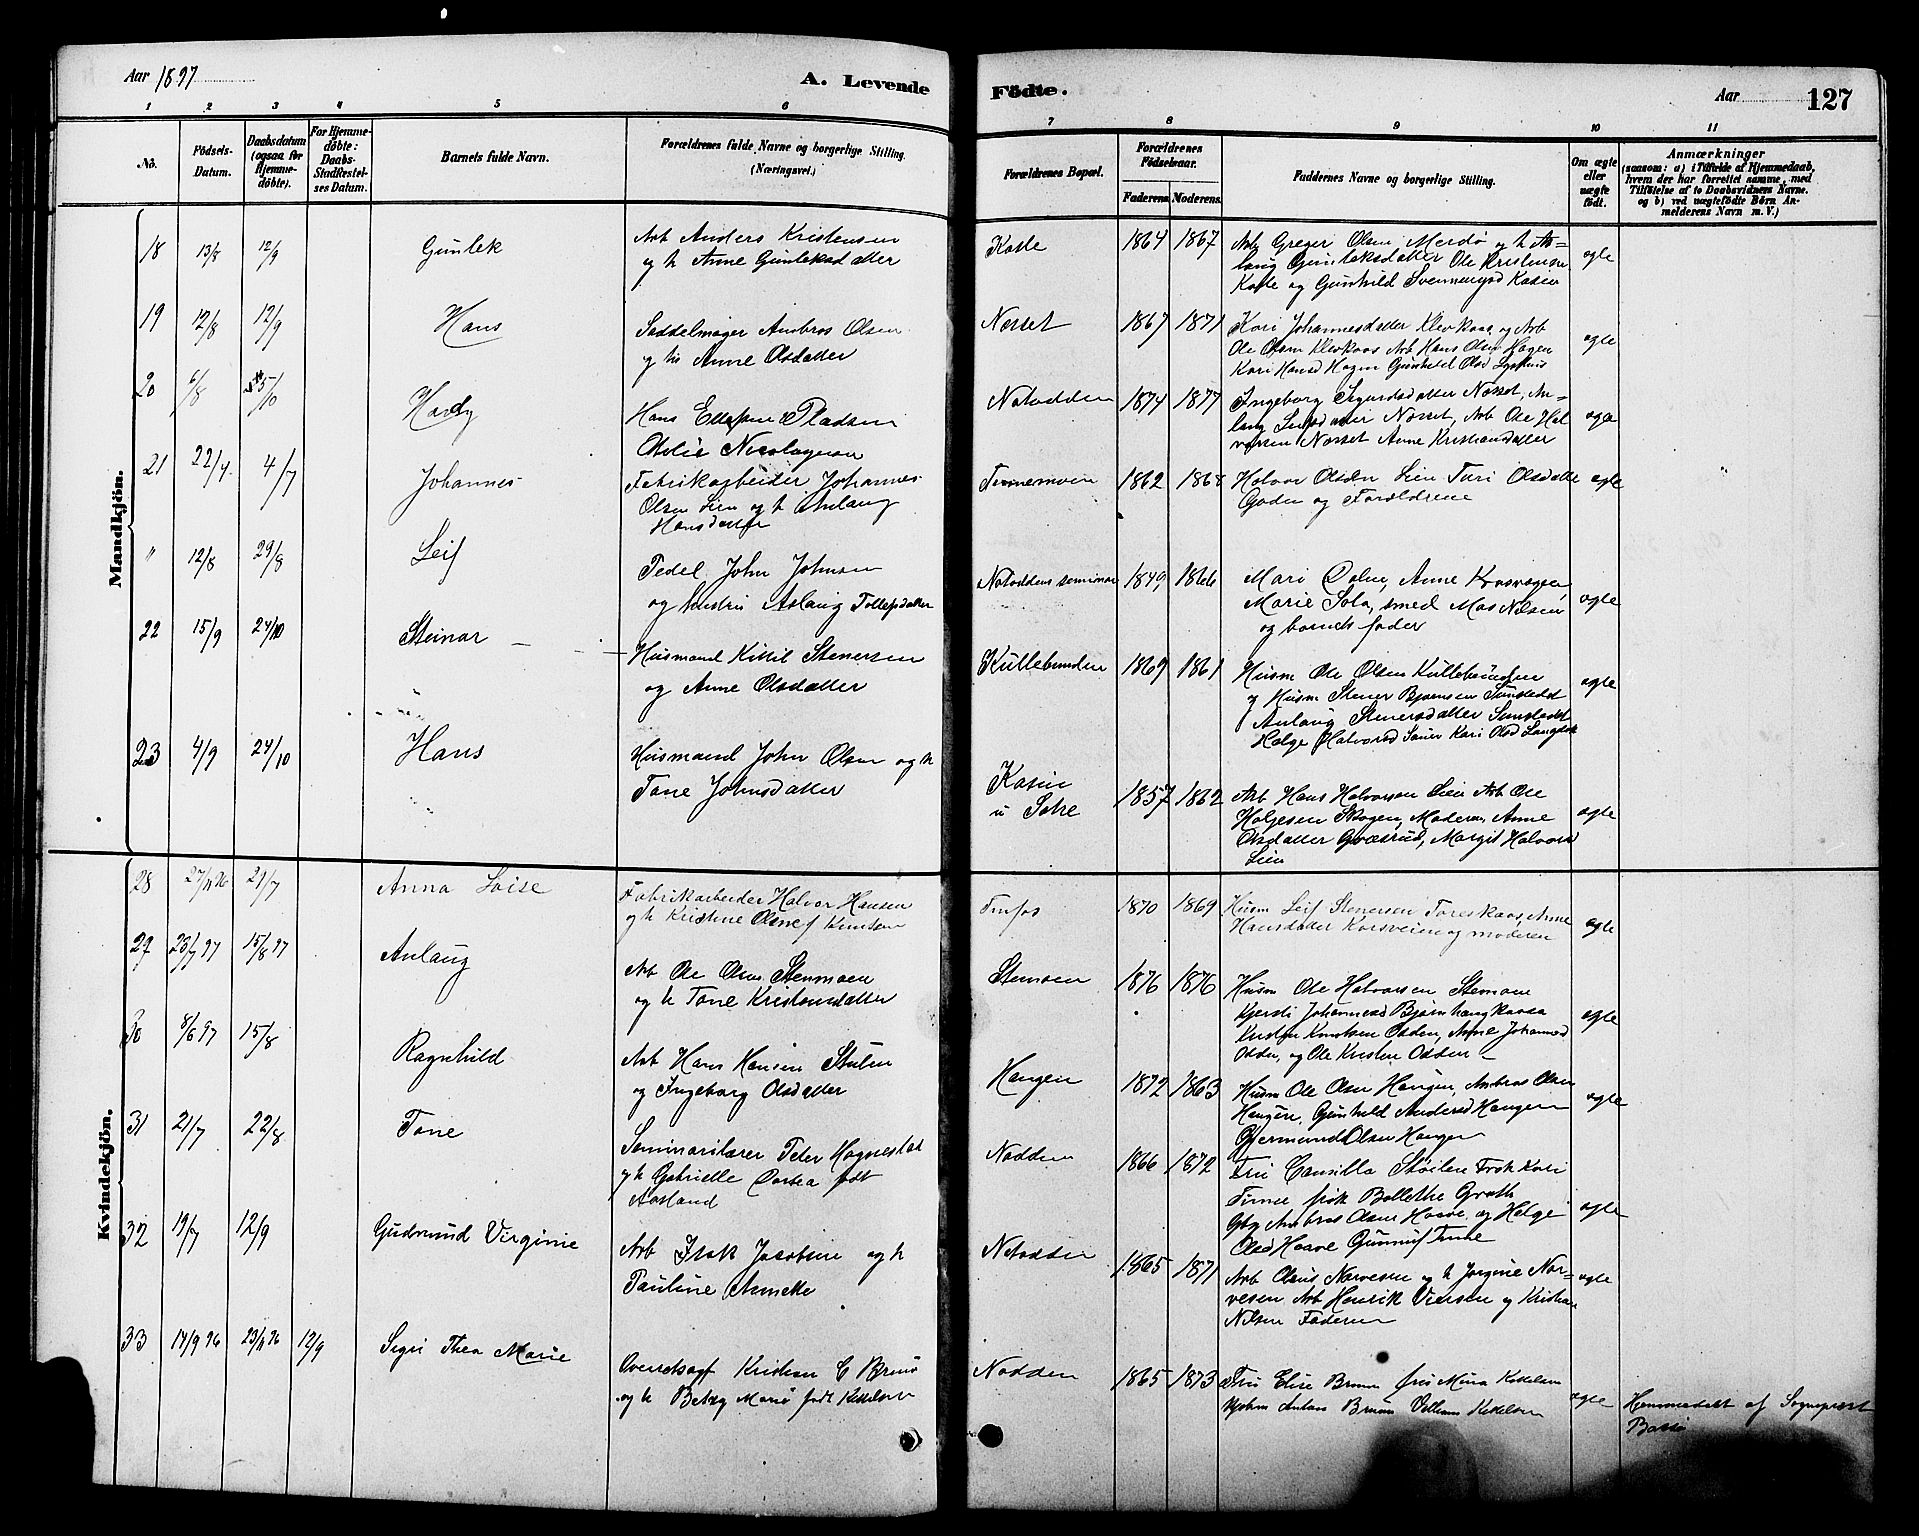 Aar 1897
A. Levende
Fødte.
Aar
127
1 2 3 4 5 6 7 8 9 10 11
No.
Fødsels-
Datum.
Daabsdatum
(ogsaa for
Hjemme-
døbte).
For Hjemme-
døbte:
Daabs-
Stadfæstel-
ses Datum.
Barnets fulde Navn.
Forældrenes fulde Navne og borgerlige Stilling.
(Næringsvei.)
Forældrenes Bopæl.
Forældrenes
Fødselsaar.
Faderens. Moderens.
Faddernes Navne og borgerlige Stilling.
Om ægte
eller
uægte
født.
Anmærkninger
(saasom: a) i Tilfælde af Hjemmedaab,
hvem der har forrettet samme, med
Tilføielse af to Daabsvidners Navne.
og b) ved uægtefødte Børn An-
melderens Navn m. V.)
Mandkjön.
18 13/8 12/9 Gunlek
Arb Anders Kristensen
og h Anne Gunleksdatter
Kaste 1864 1867
Arb Greger Olsen Merdø og h As-
laug Gunleksdatter Ole Kristense
Kaste og Gunhild Svenningsd Kasin
ægte
19 12/8 12/9 Hans
Saddelmager Ambros Olsen
og hu Anne Olsdatter
Nesset 1867 1871
Kari Johannesdatter Klevkaas og Arb
Ole Olsen Klevkaas Arb Hans Olsen Hagen
Kari Hansd Hagen Gunhild Olsd
ægte
20 6/8 5/10 Hardy
Hans Ellefsen Pladsen
Notodden 1874 1877
Ingeborg Sigurdsdatter Nesset, An-
laug Nesset, Arb Ole Hal
vorsen Nesset Anne Kristiansdatter
ægte
21 22/4 4/7 Johannes
Fabrikarbeider Johannes
Olsen Lien og h Anlaug
Hansdatter
Tinnemoen 1862 1868
Halvor Olsen Lien Turi Olsdatte
Goden og Forældrene
ægte
" 12/8 29/8 Leif
Pedel John Johnsen
og hustru Aslaug Tollefsdatter
Notoddens seminar 1849 1866
Mari Dalen, Anne
Marie Sola, smed Mas Nilsen
og barnets fader
ægte
22 15/9 24/10 Steinar
Husmand Kittil Stenersen
og Anne Olsdatter
Kullebunden 1869 1861
Husm Ole Olsen Kullebunden
og Husm Stener Bjørnsen Sunstedet
Anlaug Stenersdatter Sunstedet
Helge Halvorsd Kari Olsd
ægte
23 4/9 24/10 Hans
Husmand John Olsen og h
Tone Johnsdatter
Kasin
u Sake 1857 1862
Arb Hans Halvorsen Lien Arb Ole
Holjesen Skogen, Moderen, Anne
Olsdatter Margit Halvorsd
Lien
ægte
Kvindekjön.
28 27/11 96 21/7 Anna Loise
Fabrikarbeider Halvor Hansen
og h Kristine Olsne f Knutsen
Tinfos 1870 1869
Husm Leif Stenersen Toreskaas, Anne
Hansdatter Korsveien og moderen
ægte
29 23/7 97 15/8 97 Anlaug
Arb Ole Olsen Stenmoen
og h Tone Kristensdatter
Stemoen 1876 1876
Husm Ole Halvorsen Stemoen
Kjersti Johannesd Bjørnhaugkaasa
Knutsen Odden, Anne Johannesd
Odden, og Ole Kristen Odden
ægte
30 8/6 97 15/8 Ragnhild
Arb Hans Hansen Stulen
og Ingeborg Olsdatter
Haugen 1872 1863
Husm Ole Olsen Haugen, Ambros Olsen
Haugen, Gunhild Andersd Haugen
Gjermund Olsen Haugen
ægte
31 21/7 22/8 Tone
Seminarilærer Peter Hognestad
og h Gabrielle Dortea født
Aasland
Nodden 1866 1872
Fru Camilla Støilen Frøk Kari
Tinne frøk Bolletthe Groth
Gbg Ambros Olsen Haave og Helge
Olsd Haave Gunnuf Tinne
ægte
32 19/7 12/9 Gudmund Virginie
Arb Isak Jacobsen og h
Pauline Annette
Notodden 1865 1871
Arb Olaus Norvesen og h Jorgine Nor-
vesen Arb Henrik Viersen og Kristian
Nilsen Faderen
ægte
33 14/9 96 23/11 96 12/9 Sigri Thea Marie
Overretssagf Kristian C Bruun
og h Betzy Marie født Kittelsen
Nodden 1865 1873
Fru Elise Bruun frk Mina Kittelsen
Bruun Vilhelm Kittelsen
ægte
Hjemmedøbt af Sogneprest
Bassø